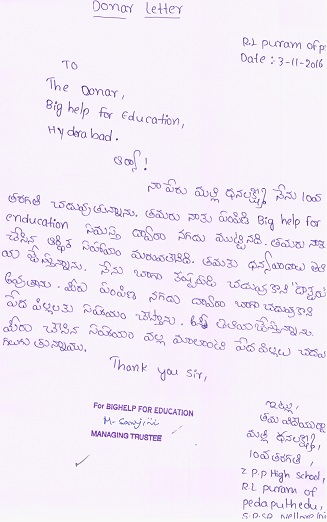 Donar Letter
R.L puram of p
Date: 3-11-2016
To
The Donar,
Big help for Education,
Hyderabad.
ఆర్యా!
నా పేరు మల్లి ధనలక్ష్మి నేను 10వ
తరగతి చదువుతున్నాను. తమరు నాకు పంపిన Big help for
enducation సంస్థ ద్వారా నగదు ముట్టినది. తమరు నాకు
చేసిన ఆర్థిక సహాయం మరువలేనిది. తమకు ధన్యవాదాలు తెలి
చేస్తున్నాను. నేను బాగా కష్టపడి చదువుకొని
అవుతాను. మీరు పంపిన నగదు ద్వారా బాగా చదువుకొని
పేద పిల్లలకు సహాయం చేస్తాను. అని తెలియచేస్తున్నాను.
మీరు చేసిన సహాయం వల్ల మాలాంటి పేద పిల్లలు చదువ
గలుగుతున్నాము.
Thank you sir,
For BIGHELP FOR EDUCATION
MANAGING TRUSTEE
ఇట్లు,
తమ విధేయురాలు
మల్లి ధనలక్ష్మి,
10వ తరగతి,
Z.P.P High school,
R.L puram of
pedaputhedu,